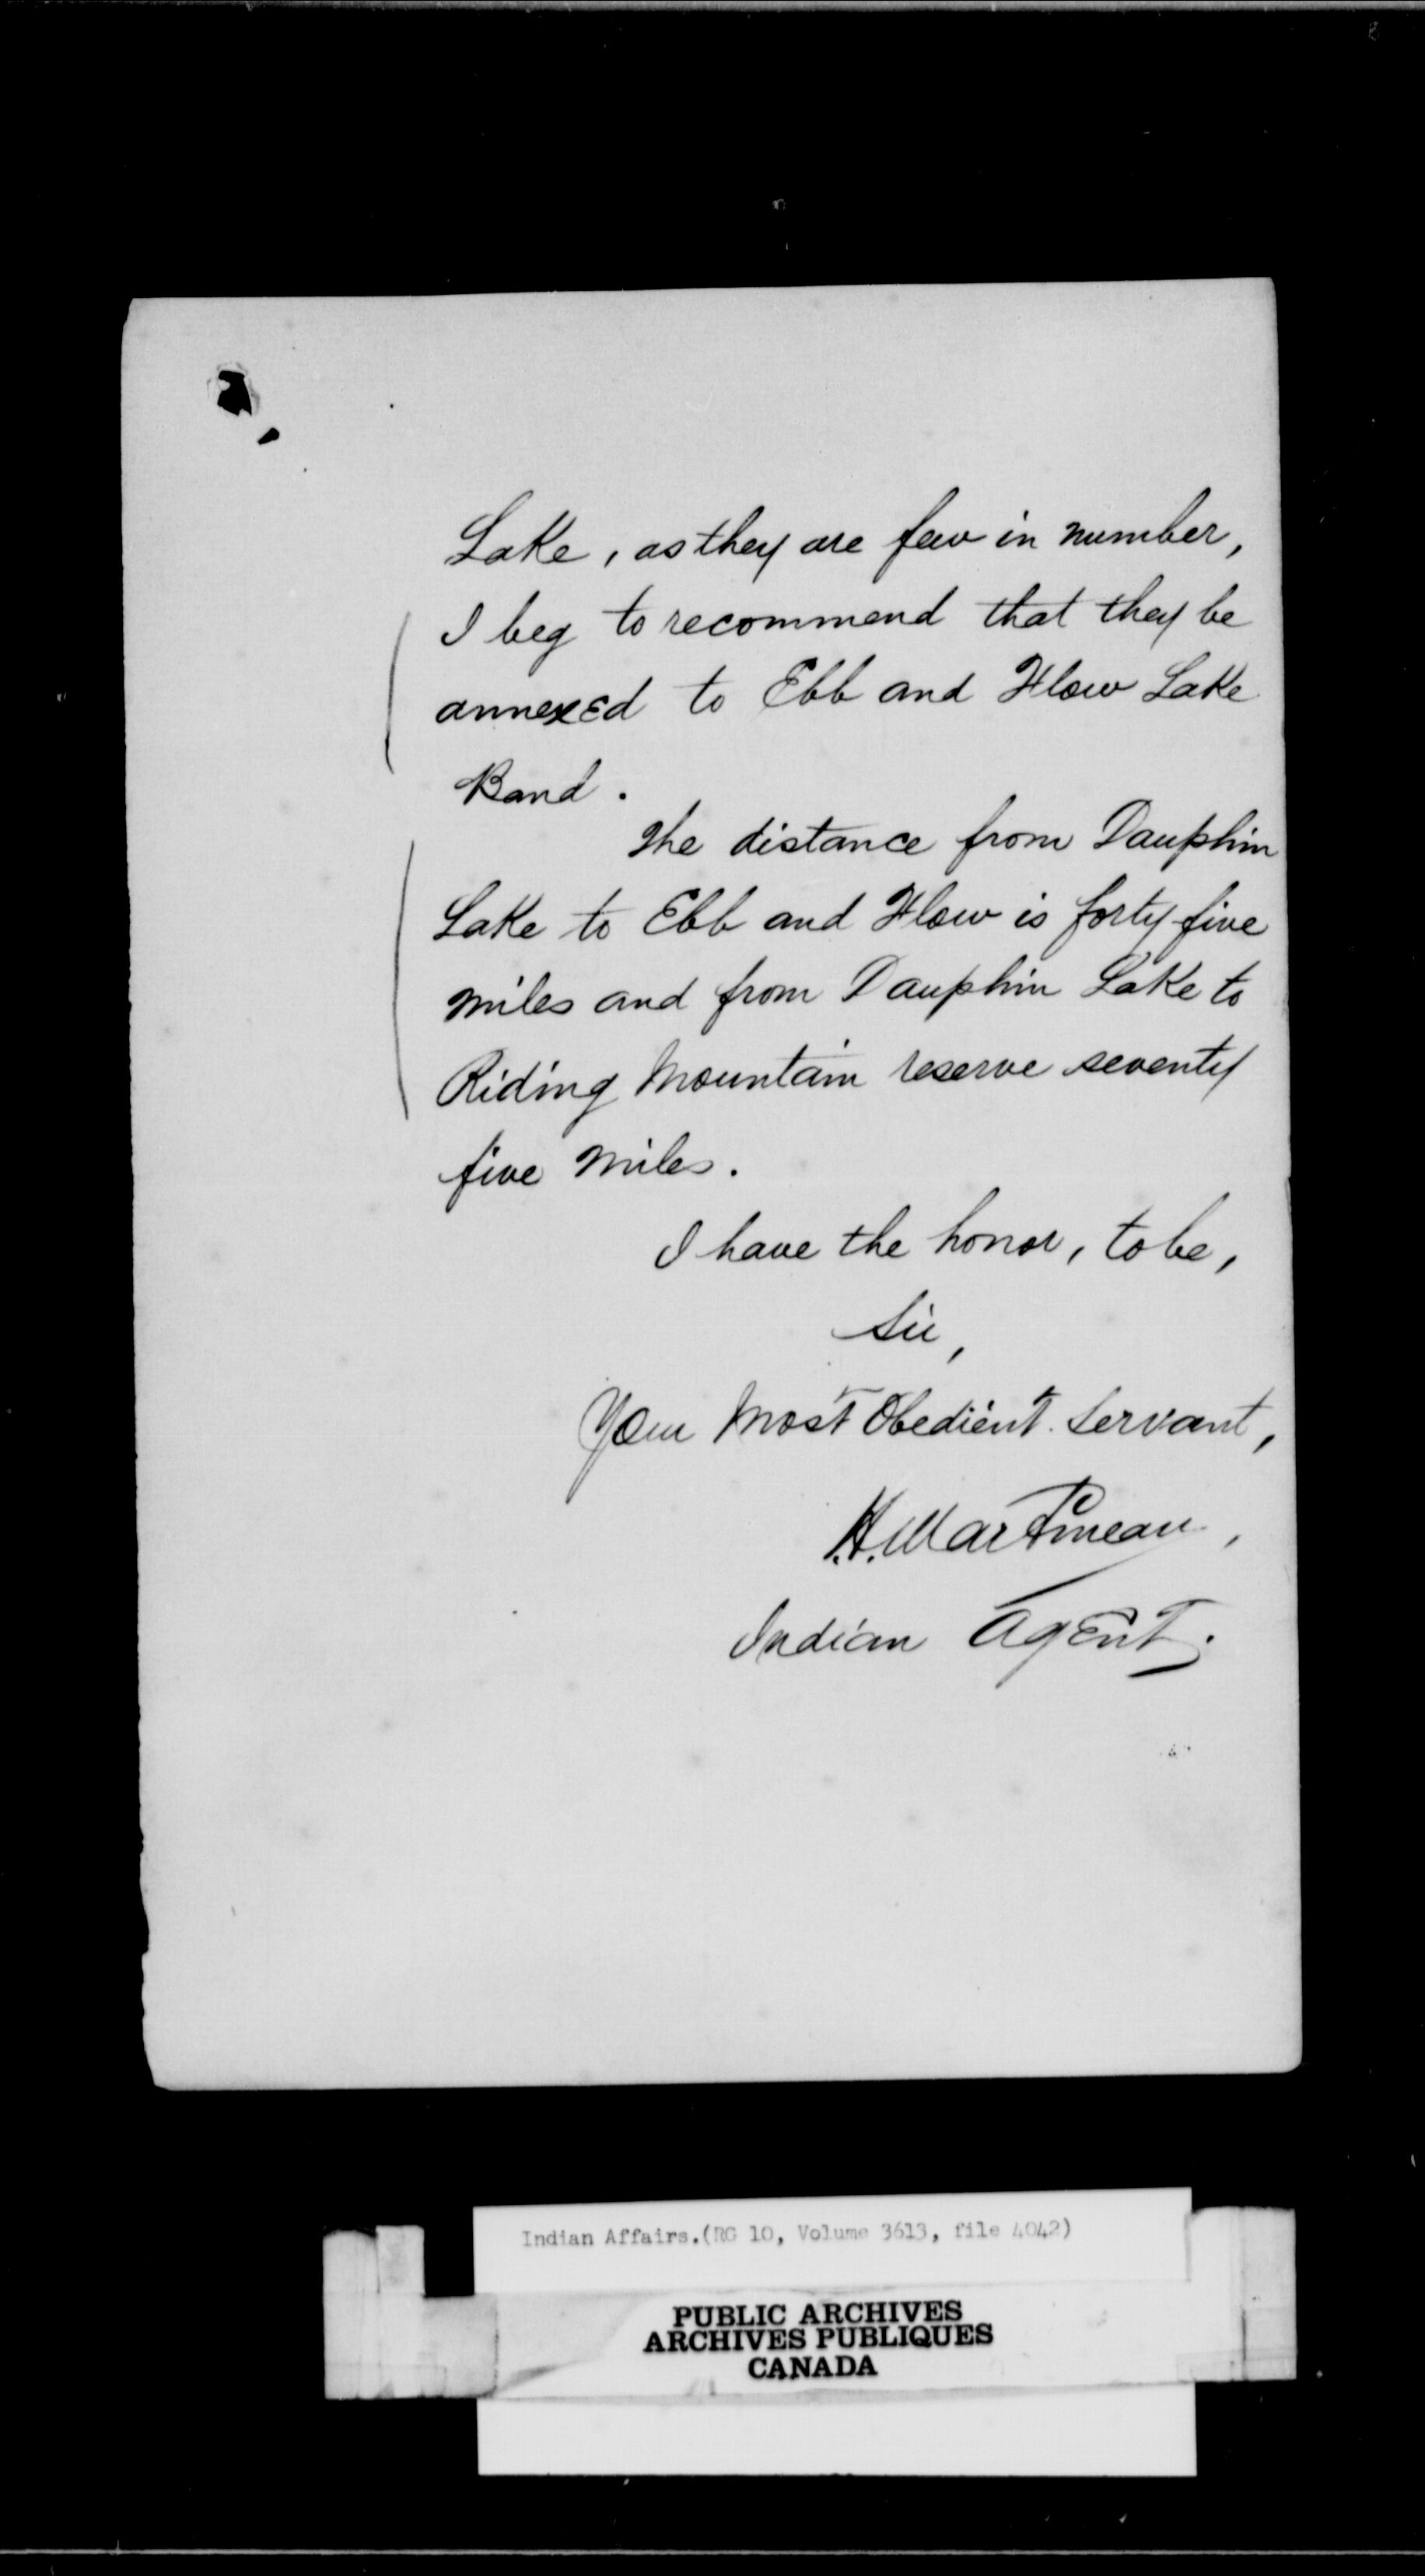 Lake, as they are few in number,
I beg to recommend that they be
annexed to Ebb and Flow Lake
Band.
The distance from Dauphin
Lake to Ebb and Flow is forty five
miles and from Dauphin Lake to
Riding Mountain reserve seventy
five miles.
I have the honor, to be,
Sir,
Your Most Obedient Servant,
H. Martineau,
Indian Agent.
Indian Affairs.(RG 10, Volume 3613, file 4042)
PUBLIC ARCHIVES
ARCHIVES PUBLIQUES
CANADA